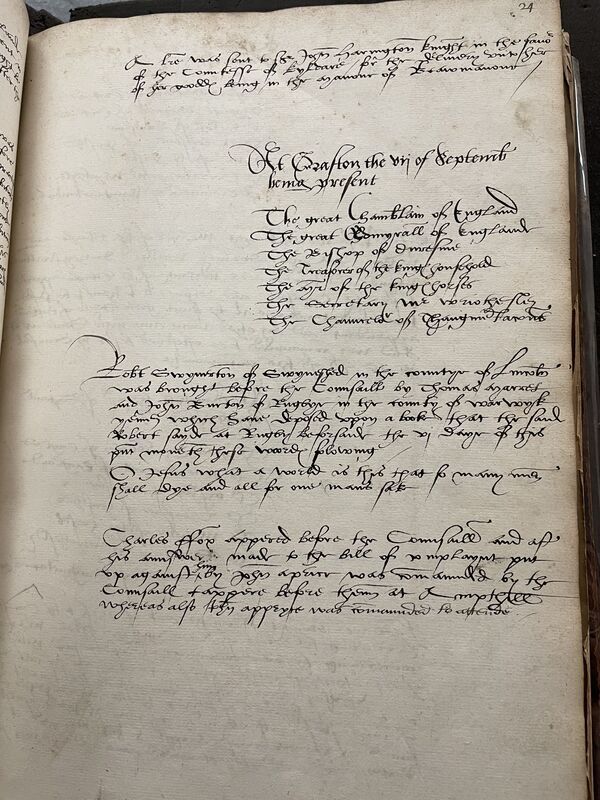 24
A lre was sent to Sr John Haryngton knight in the favor
of the Comtesse of Kyldare for the delivery unto her
of her goodes being in the manour of Beawmanour
At Grafton the vij of Septemb
being present
The great Chamblain of England
The great Admyrall of England
The Bishop of Duresme
The Treasorer of the kinges household
The Mr of the kinges horses
The Secretary Mr Wriothesley
The Chauncelor of Thaugmentacons
Robt Swynerton of Swynshed in the countye of Lincoln
was brought before the Counsaill by Thomas
and John Burton of Rugbye in the county of Warwyk
yemen which have deposed upon a booke that the said
Robert sayde at Rugby beforsaide the vj daye of this
pnt moneth these wordes folowing
O Jesus what a world is this that so many men
shall dye and all for one mans sake
Charles ffox appered before the Counsaill and aft
his answer made to the bill of complaynt put
up against him by John apricr was commanded by the
Counsaill tappere before them at Ampthill
whereas also John appryce was comaunded to attende